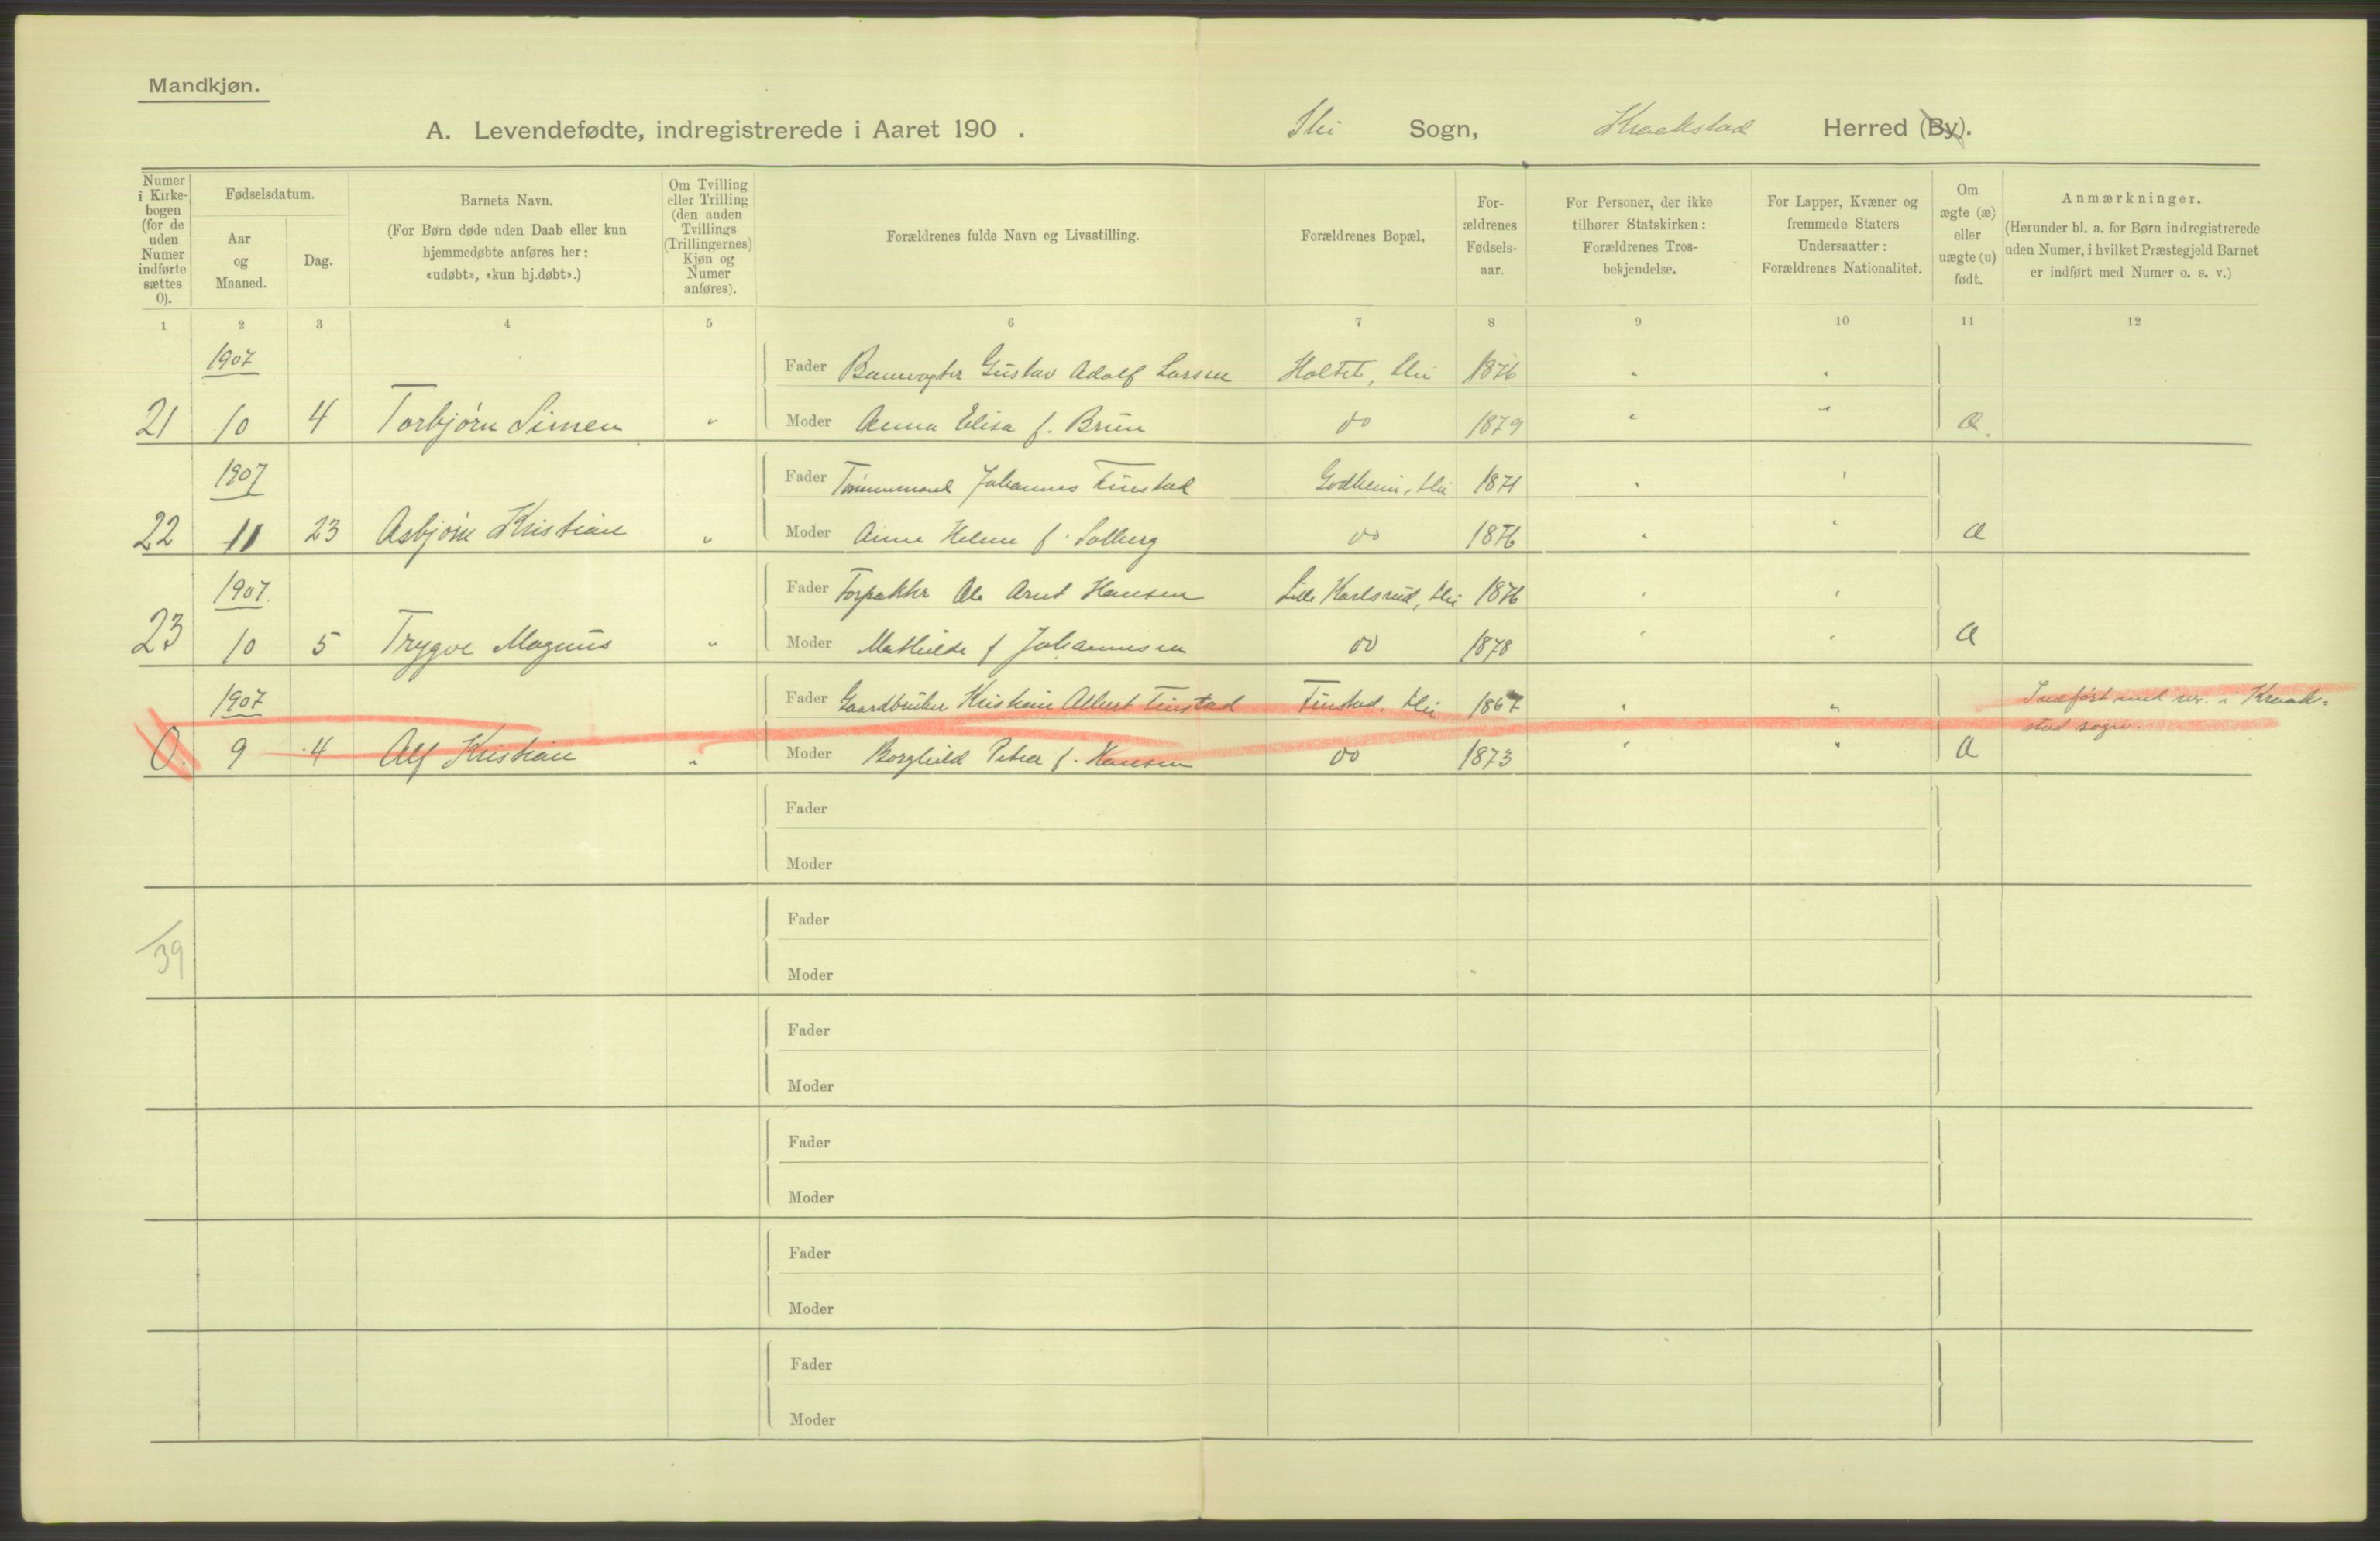 Mandkjøn.
A. Levendefødte, indregistrerede i Aaret 190 . Ski Sogn, Kraakstad Herred (By).
Numer i Kirke-bogen (for de uden Numer indførte sættes 0).
Fødselsdatum.
Aar og Maaned.
Dag.
Barnets Navn.
(For Børn døde uden Daab eller kun
hjemmedøbte anføres her:
«udøbt», «kun hj.døbt».)
Om Tvilling
eller Trilling
(den anden
Tvillings
(Trillingernes)
Kjøn og
Numer
anføres).
Forældrenes fulde Navn og Livsstilling.
Forældrenes Bopæl,
For-
ældrenes
Fødsels-
aar.
For Personer, der ikke
tilhører Statskirken:
Forældrenes Tros-
bekjendelse.
For Lapper, Kvæner og
fremmede Staters
Undersaatter:
Forældrenes Nationalitet.
Om
ægte (æ)
eller
uægte (u)
født.
Anmærkninger.
(Herunder bl. a. for Børn indregistrerede
uden Numer, i hvilket Præstegjeld Barnet
er indført med Numer o. s. v.)
1 2 3 4 5 6 7 8 9 10 11 12
1907 Fader Banevogter Gustav Adolf Larsen Holtet, Ski 1876 " "
21 10 4 Torbjørn Simen " Moder Anna Elisa f. Brun do 1879 " " æ.
1907 Fader Tømmermand Johannes Finstad Godheim, Ski 1871 " "
22 11 23 Asbjørn Kristian " Moder Anne Helene f. Solberg do 1876 " " æ
1907 Fader Forpakter Ole Arnt Hansen Lille Karlsrud, Ski 1876 " "
23 10 5 Trygve Magnus " Moder Mathilde f Johannesen do 1878 " " æ
1907 Fader Gaardbruker Kristian Albert Finstad Finstad, Ski 1867 " " Indført med nr. i Kraak-
stad sogn.
0. 9 4 Alf Kristian " Moder Borghild Petra f. Hansen do 1873 " " æ
Fader
Moder
39
Fader
Moder
Fader
Moder
Fader
Moder
Fader
Moder
Fader
Moder